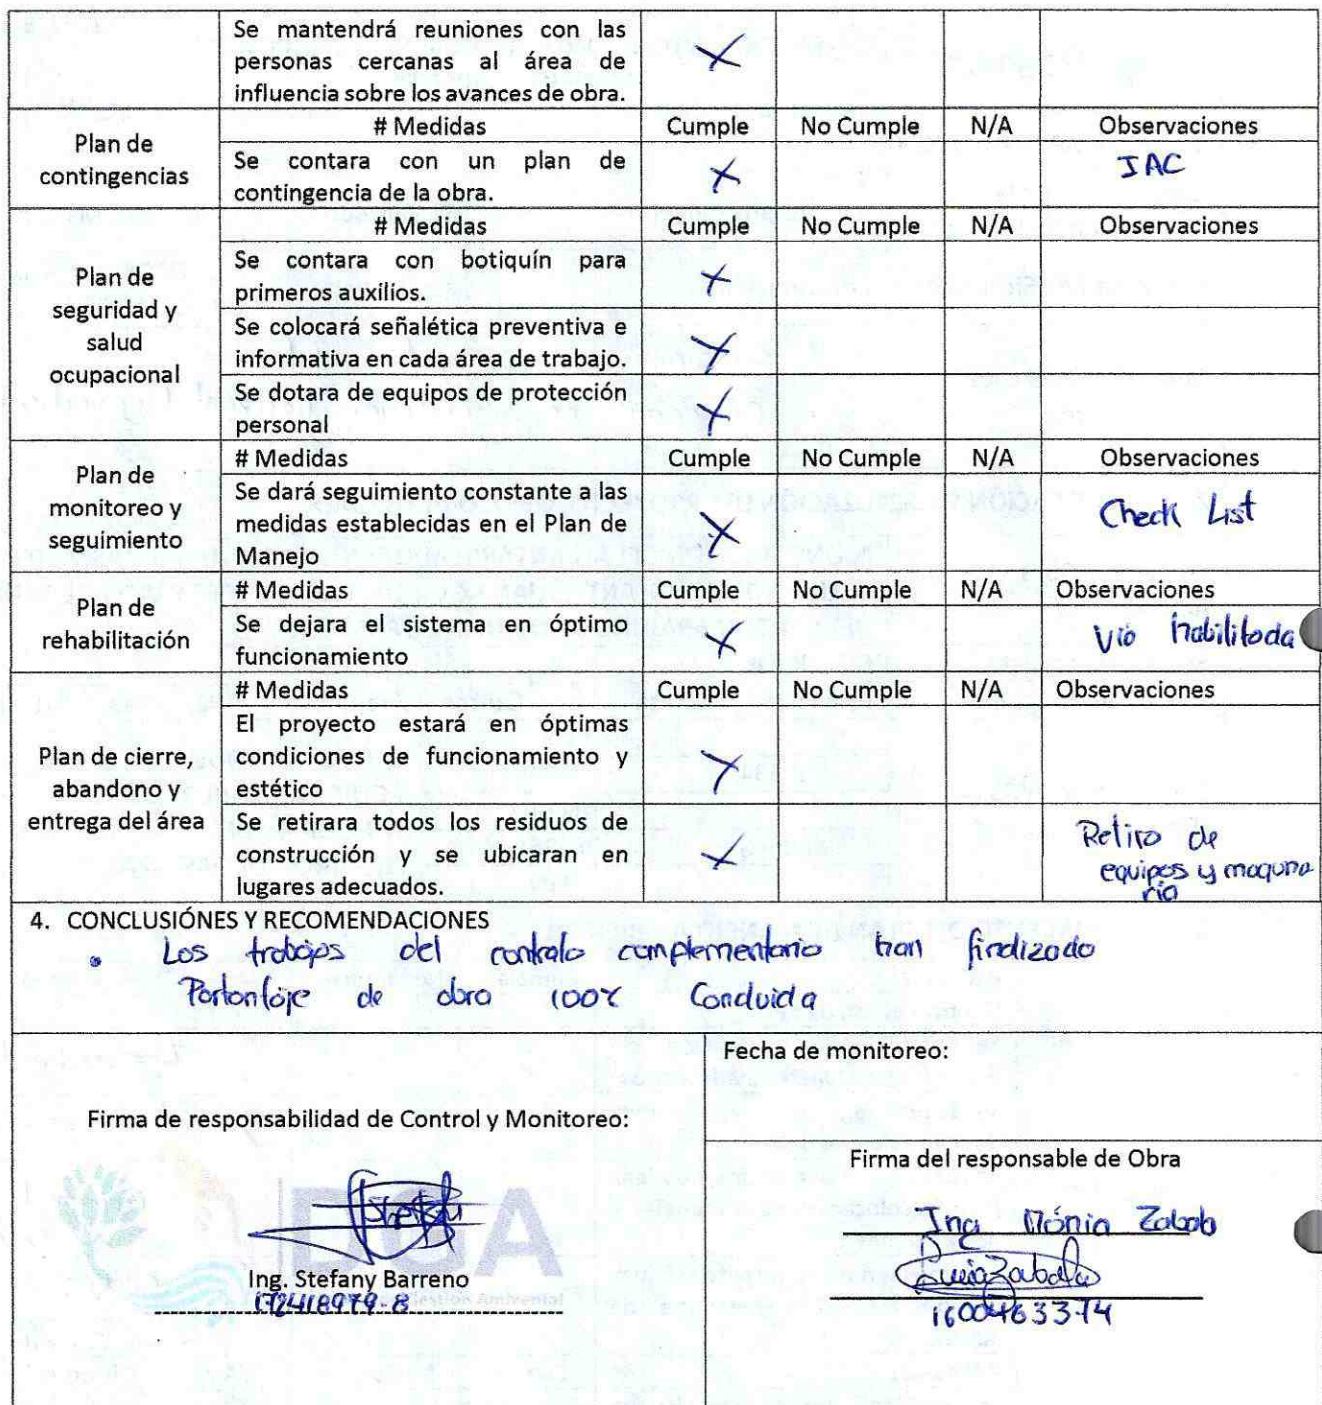 Se mantendrá reuniones con las
personas cercanas al área de
influencia sobre los avances de obra.
Plan de
contingencias
# Medidas Cumple No Cumple N/A Observaciones
Se contara con un plan de
contingencia de la obra.
JAC
Plan de
seguridad y
salud
ocupacional
# Medidas Cumple No Cumple N/A Observaciones
Se contara con botiquín para
primeros auxilios.
Se colocará señalética preventiva e
informativa en cada área de trabajo.
Se dotara de equipos de protección
personal
Plan de
monitoreo y
seguimiento
# Medidas Cumple No Cumple N/A Observaciones
Se dará seguimiento constante a las
medidas establecidas en el Plan de
Manejo
Check List
Plan de
rehabilitación
# Medidas Cumple No Cumple N/A Observaciones
Se dejara el sistema en óptimo
funcionamiento
Vía habilitada
Plan de cierre,
abandono y
entrega del área
# Medidas Cumple No Cumple N/A Observaciones
El proyecto estará en óptimas
condiciones de funcionamiento y
estético
Se retirara todos los residuos de
construcción y se ubicaran en
lugares adecuados.
Retiro de
equipos y maquina
ria
4. CONCLUSIÓNES Y RECOMENDACIONES
• Los trabajos del contrato complementario han finalizado
de obra 100% Concluida
Firma de responsabilidad de Control y Monitoreo:
DGA
Ing. Stefany Barreno
Gestión Ambiental
Fecha de monitoreo:
Firma del responsable de Obra
Ing Zabala